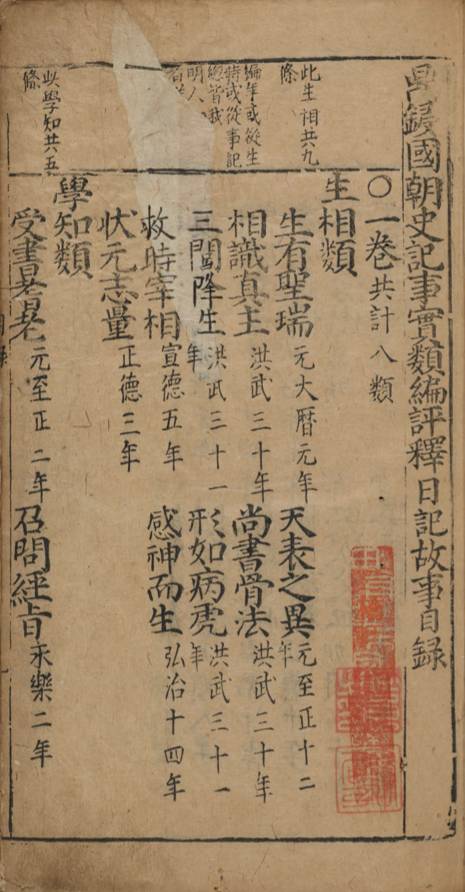 鋟國朝史記事實類編評釋日記故事目錄
○一卷共計八類
生相類
此生相共九條
編年或從生時或從事記
生有聖瑞 元大曆元年 天表之異 元至正十二年
相識真主 洪武三十年 尚書骨法 洪武三十年
三閩降生 洪武三十一年 形如病虎 洪武三十一年
救時宰相 宣德五年 感神而生 弘治十四年
狀元志量 正德三年
學知類
此學知共五條
受書 元至正二年 召問經旨 永樂二年